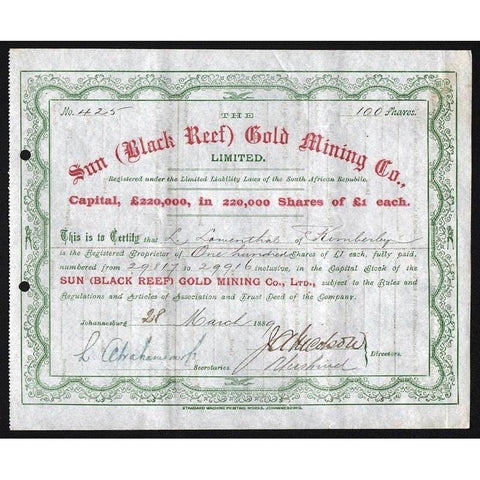 No. 425 100 Shares.
THE
Sun (Black Reef) Gold Mining Co.,
LIMITED.
Registered under the Limited Liability Laws of the South African Republic.
Capital, £220,000, in 220,000 Shares of £1 each.
This is to Certify that L. Lowenthal of Kimberley
is the Registered Proprietor of One hundred Shares of £1 each, fully paid,
numbered from 29817 to 29916 inclusive, in the Capital Stock of the
SUN (BLACK REEF) GOLD MINING Co., LTD., subject to the Rules and
Regulations and Articles of Association and Trust Deed of the Company.
Johannesburg 28 March 1889
Directors.
Secretaries.
STANDARD MACHINE PRINTING WORKS, JOHANNESBURG.